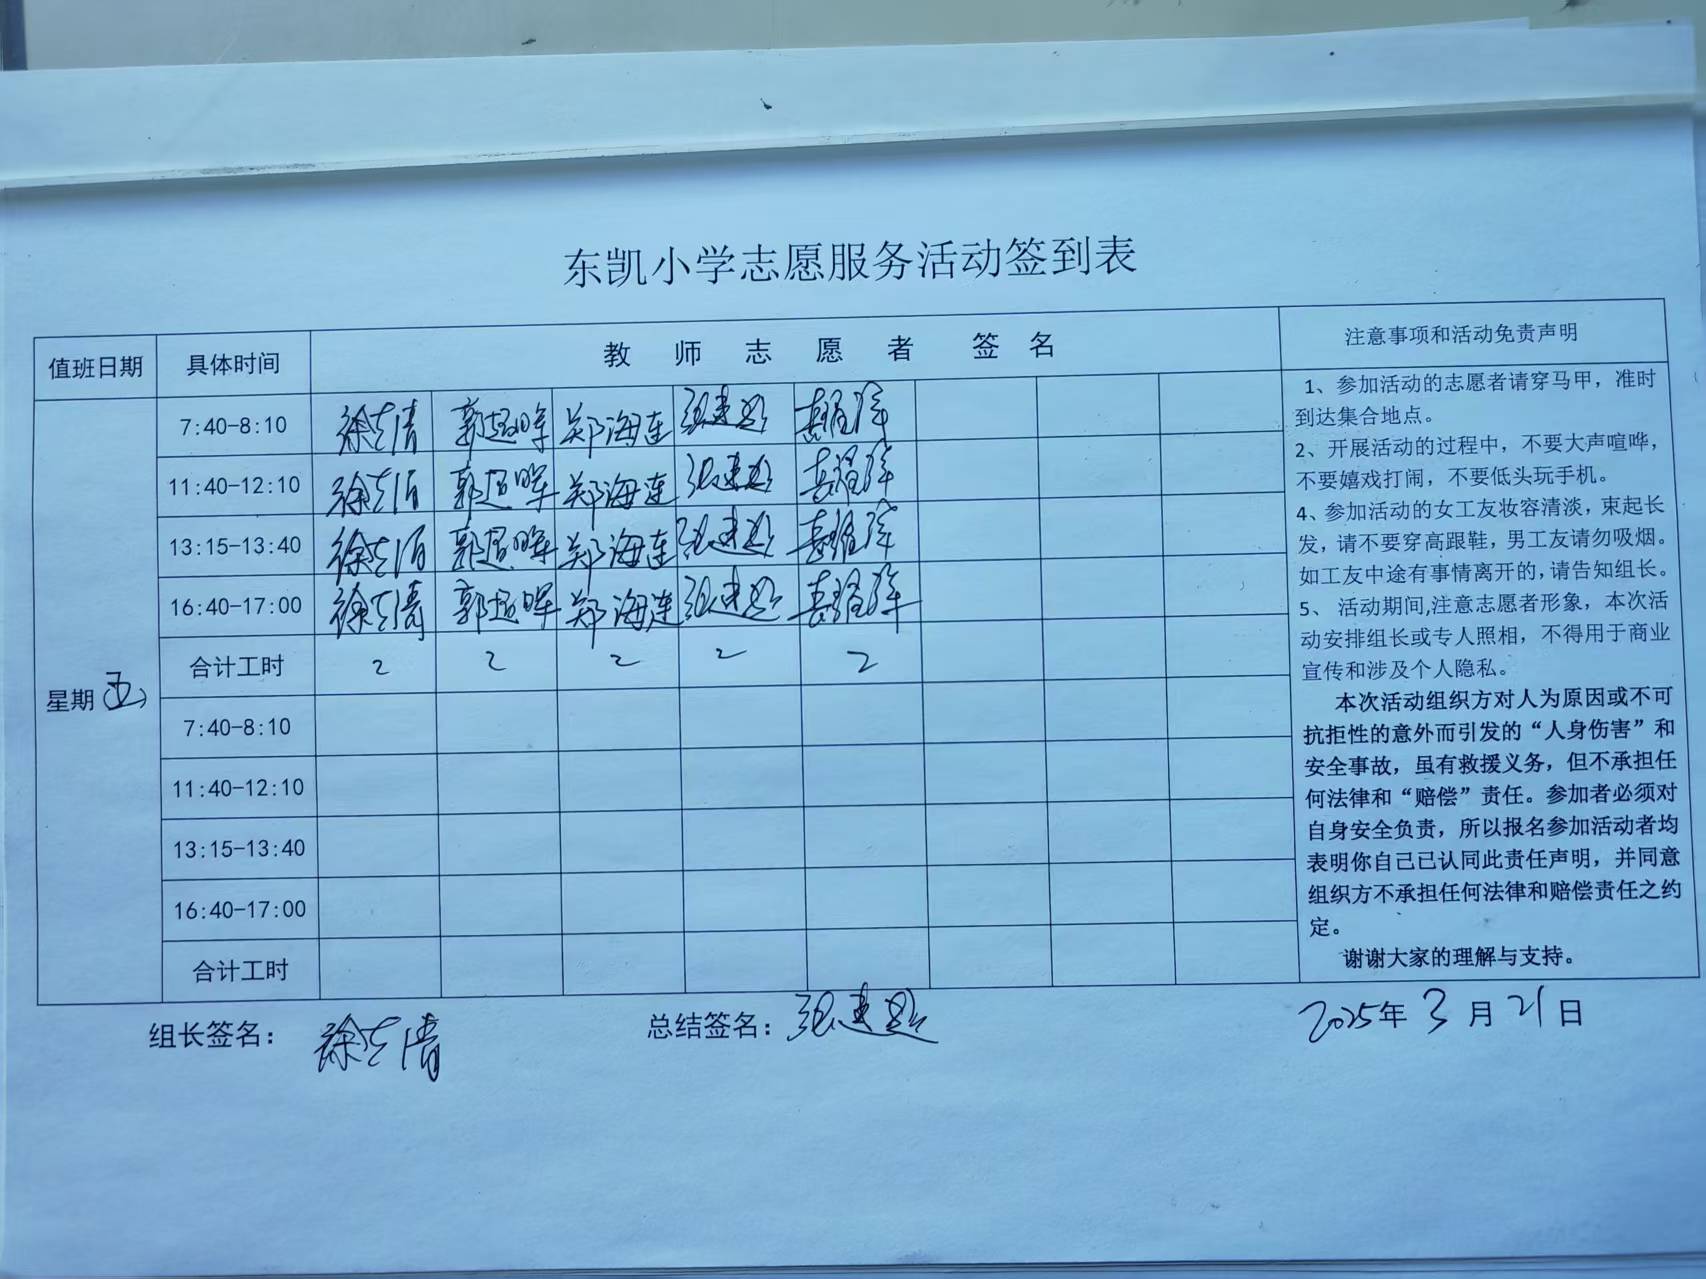 东凯小学志愿服务活动签到表
值班日期 具体时间 教师志愿者 签名 注意事项和活动免责声明
星期五
7:40-8:10 郭超晖 郑海连
11:40-12:10 郭超晖 郑海连
13:15-13:40 郭超晖 郑海连
16:40-17:00 郭超晖 郑海连
合计工时 2 2 2 2 2
7:40-8:10
11:40-12:10
13:15-13:40
16:40-17:00
合计工时
1、参加活动的志愿者请穿马甲，准时
到达集合地点。
2、开展活动的过程中，不要大声喧哗，
不要嬉戏打闹，不要低头玩手机。
4、参加活动的女工友妆容清淡，束起长
发，请不要穿高跟鞋，男工友请勿吸烟。
如工友中途有事情离开的，请告知组长。
5、 活动期间,注意志愿者形象，本次活
动安排组长或专人照相，不得用于商业
宣传和涉及个人隐私。
本次活动组织方对人为原因或不可
抗拒性的意外而引发的“人身伤害”和
安全事故，虽有救援义务，但不承担任
何法律和“赔偿”责任。参加者必须对
自身安全负责，所以报名参加活动者均
表明你自己已认同此责任声明，并同意
组织方不承担任何法律和赔偿责任之约
定。
谢谢大家的理解与支持。
组长签名： 总结签名： 2025年3月21日